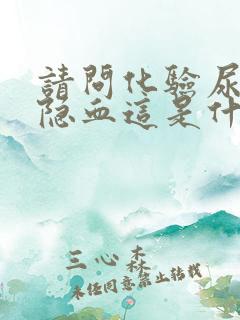 請問化驗尿
隐血這是什
三心森森
未经同意禁止转载